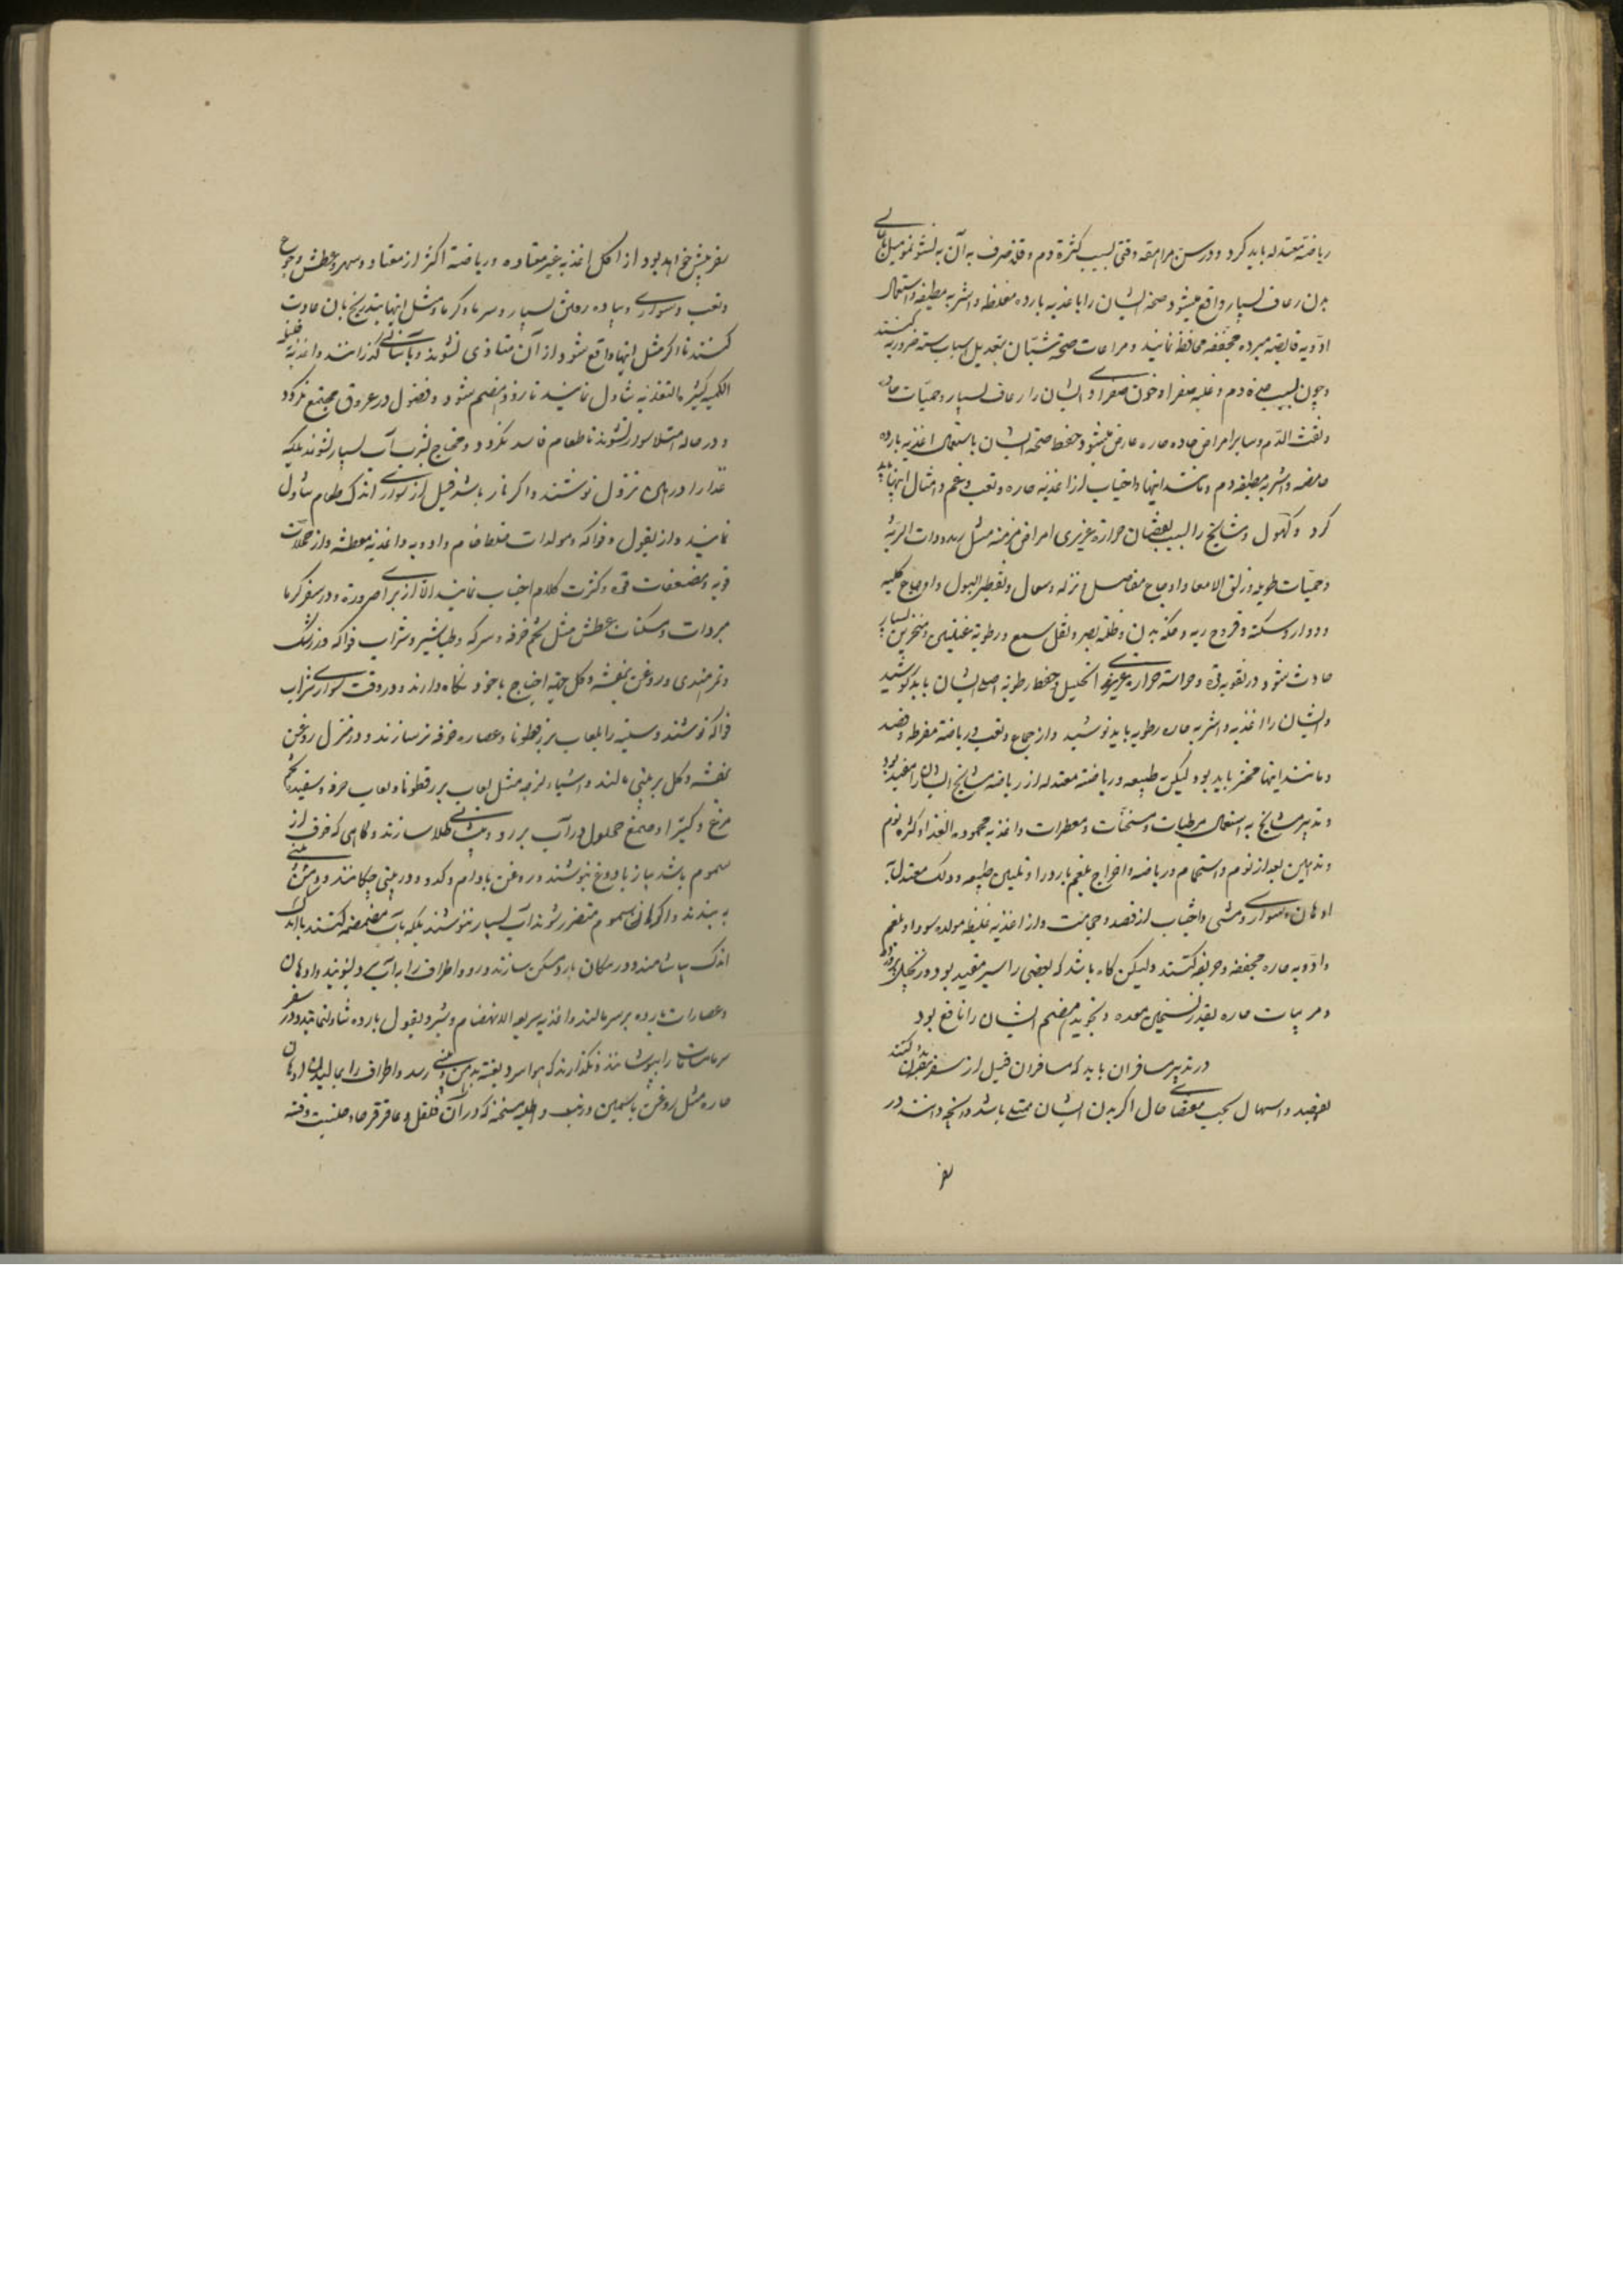 ریاضة معتدله باید کرد و در سن مراهقه وقتی بسبب کثرة دم و قلة صرف به آن به نشو نمو میل بأعالی
بدن رعاف بسیار واقع میشود صحة ایشان را با غذیه بارده مغلظه و اشربه مطفیه و استعمال
ادویه قابضه مبرده مجففه محافظة نمایند و مراعات صحة شبان بتعدیل اسباب سته ضروریه کنند
و چون بسبب حدة دم و غلبه صفرا و خون صفراوی ایشان را رعاف بسیار و حمیات حاده
و نفث الدم و سایر امراض حاده حاره عارض میشود حفظ صحة ایشان باستعمال اغذیه بارده
حامضه و اشربه مطفیه دم و مانند اینها و اجتناب از اغذیه حاره و تعب و غم و امثال اینها باید
کرد و کهول و مشایخ را بسبب نقصان حرارة غریزی امراض مزمنه مثل
و حمیات طویله و زلق الامعا و اوجاع مفاصل و نزله و سعال و تقطیر البول و اوجاع کلیه
و دوار و سکته و قروح ریه و حکه بدن و ظلمة بصر و ثقل سمع و رطوبة عینین و منخرین بسیار
حادث شود در تقویه قوة و حراسة حرارة غریزی از تحلیل و حفظ رطوبة اصلی ایشان باید کوشید
و ایشان را اغذیه و اشربه حاره رطبه باید نوشید و از جماع و تعب و ریاضة مفرطه و فصد
و مانند اینها محترز باید بود و لیکن طبیعه و ریاضة معتدله از ریاضه مشایخ ایشان را مفید بود
و تدبیر مشایخ به استعمال مرطبات و مسخنات و معطرات و اغذیه محموده الغذا و کثرة نوم
و تدهین بعد از نوم و استحمام و ریاضه و اخراج بلغم بادرار و تلیین طبیعه و دلک معتدل با
ادهان و سواری و مشی و اجتناب از فصد و حجامت و از اغذیه غلیظه مولده سودا و بلغم
و ادویه حاره مجففه و حریفه کنند و لیکن گاه باشد که بعضی را سیر مفید بود و زنجبیل پرورده
و مربیات حاره بقدر تسخین معده و تجوید هضم ایشان را نافع بود
در تدبیر مسافران باید که مسافران قبل از سفر تنقیه بدن کنند
بفصد و اسهال بحسب مقتضای حال اگر بدن ایشان ممتلی باشد و آنچه دانند در
سفر
سفر پیش خواهد بود از اکل اغذیه غیر معتاده و ریاضة اکثر از معتاد و سهر و عطش و جوع
و تعب و سواری و پیاده رفتن بسیار و سرما و گرما و مثل اینها بتدریج بآن عادت
کنند تا اگر مثل اینها واقع شود از آن متاذی نشوند و بآسانی گذرانند و اغذیه قلیله
الکمیه کثیرة التغذیه تناول نمایند تا زود هضم شود و فضول در عروق مجتمع نگردد
و در حاله امتلا سوار نشوند تا طعام فاسد نگردد و محتاج بشرب آب بسیار نشوند بلکه
غذا را در حین نزول نوشند و اگر ناچار باشد قبل از سواری اندک طعام تناول
نمایند و از بقول و فواکه و مولدات خلط خام و ادویه و اغذیه معطشه و از
قویه و مضعفات قوه و کثرت کلام اجتناب نمایند الا از برای ضرورة و در سفر گرما
مبردات و مسکنات عطش مثل تخم خرفه و سرکه و طباشیر و شراب فواکه و زرشک
و تمر هندی و روغن بنفشه و گل جهة احتیاج با خود نگاه دارند و در وقت سواری شراب
فواکه نوشند و سینه را بلعاب بزرقطونا و عصاره خرفه تر سازند و در منزل روغن
بنفشه و گل بر بینی مالند و اشیاء لزجه مثل لعاب بزرقطونا و لعاب خرفه و سفیده تخم
مرغ و کتیرا و صمغ محلول در آب بر رو و پیشانی طلا سازند و گاهی که خوف از
سموم باشد پیاز با دوغ بنوشند و روغن بادام و کدو در بینی چکانند و دهن و بینی
به بندند و اگر از سموم متضرر شوند آب بسیار ننوشند بلکه بآب مضمضه کنند یا اندک
اندک بیاشامند و در مکان بارد مسکن سازند و رو و اطراف را به آب سرد بشویند و ادهان
و عصارات بارده بر سر مالند و اغذیه سریعه الانهضام و شیر و بقول بارده تناول نمایند و در سفر
سرما مسامات را بپوشانند و نگذارند که هوا سرد بغتة بدهن و بینی رسد و اطراف را بمالیدن ادهان
حاره مثل روغن یاسمین و زنبق و اطلیه مسخنه که در آن فلفل و عاقرقرحا و حلتیت و قنه